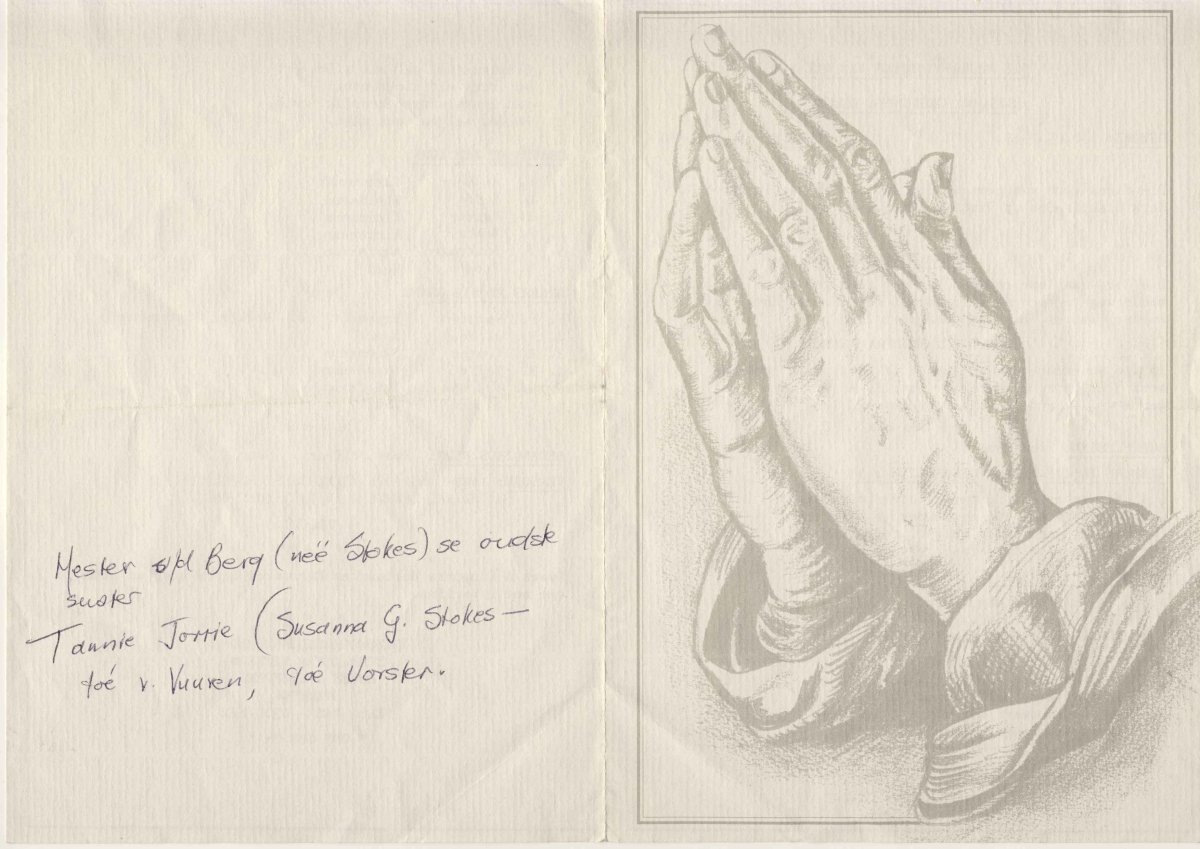 Hester v/d Berg (neé Stokes) se oudste
suster
Tannie Jorrie (Susanna G. Stokes –
toé v. Vuuren, toé Vorster.